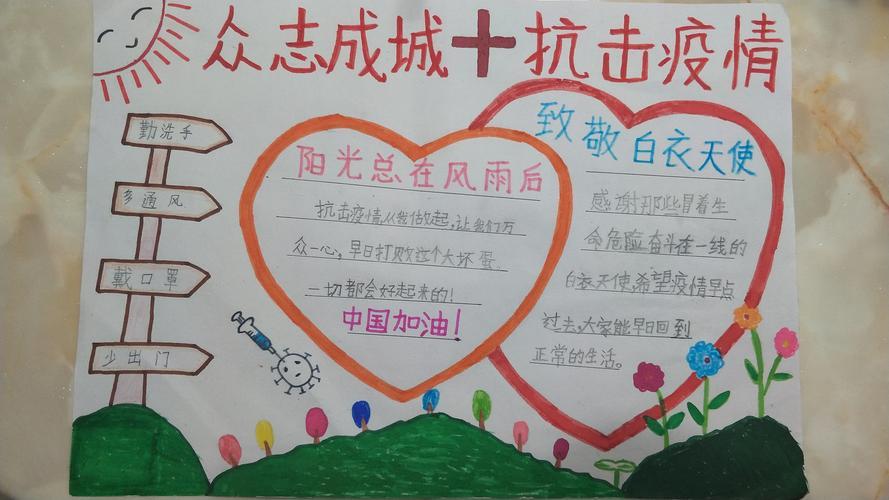 众志成城 抗击疫情
勤洗手
多通风
戴口罩
少出门
阳光总在风雨后
抗击疫情从我做起,让我们万
众一心,早日打败这个大坏蛋
一切都会好起来的!
中国加油!
致敬白衣天使
感谢那些冒着生
命危险奋斗在一线的
白衣天使,希望疫情早点
过去,大家能早日回到
正常的生活。